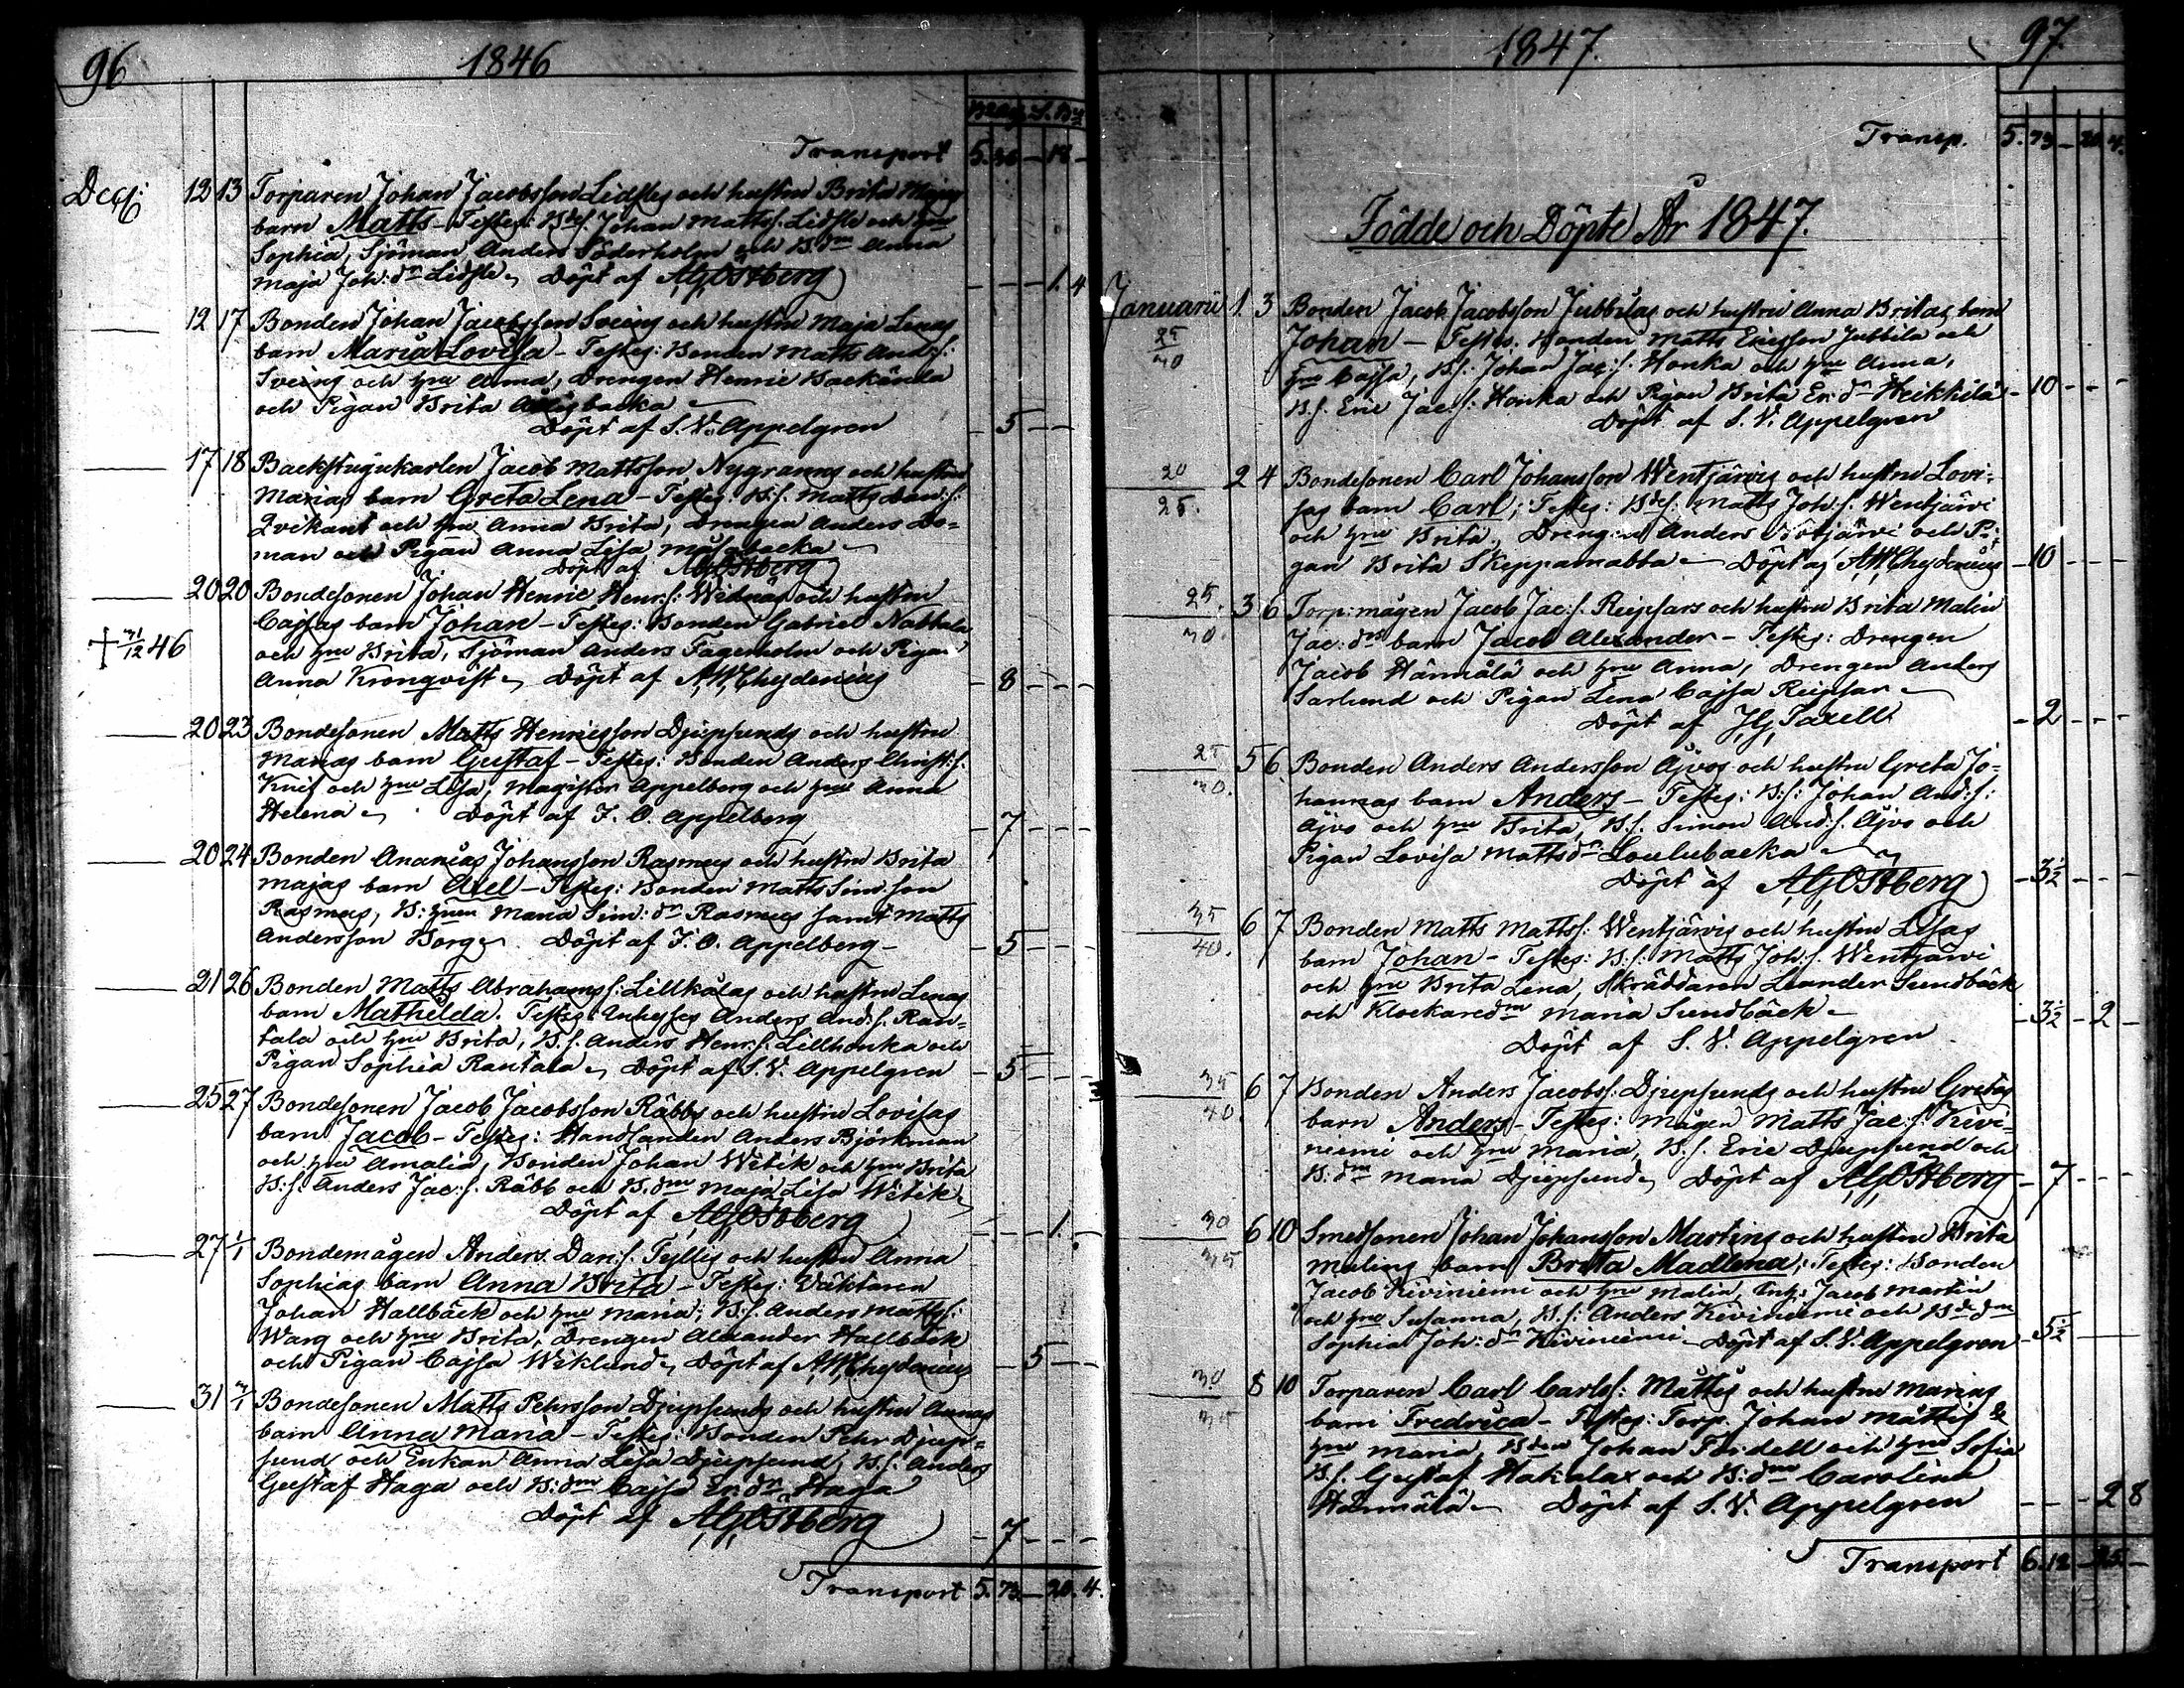 96
1846
Transport 5. 36 — 18 —
Decb: 12 13 Torparen Johan Jacobsson Lidsles och hustru Brita Majas
barn Matts – Testes: Bds. Johan Mattss. Lidsle och hru
Sophia, Sjöman Anders Söderholm och B.dn Anna
Maja Joh: dr Lidsle, Döpt af AGÖstberg — — — 1. 4
12 17 Bonden Johan Jacobsson Sveins och hustru Maja Lenas
barn Maria Lovisa – Testes: Bonden Matts And:s:
Sveins och hru Anna, Drengen Henric Backända
och Pigan Brita backa
Döpt af S. V. Appelgren — 5 — —
17 18 Backstugukarlen Jacob Mattsson Nygranns och hustru
Marias barn Greta Lena – Testes: B:s. Matts Dan:s:
Qvikant och hru Anna Brita, Drengen Anders Do=
man och Pigan Anna Lisa Måsabacka
Döpt af AGÖstberg
20 20 Bondesonen Johan Henric Henr:s: Widnäs och hustru
Cajsas barn Johan – Testes: Bonden Gabriel Nabbala
† 31/12 46
och hru Brita, Sjöman Anders Fagerholm och Pigan
Anna Kronqvist, Döpt af AWChydenius — 8 — — —
20 23 Bondesonen Matts Henricsson Djupsunds och hustru
Marias barn Gustaf – Testes: Bonden Anders Christ:s:
Knif och hru Lisa, Magister Appelberg och hru Anna
Helena, Döpt af F. O. Appelberg — 7 — — —
20 24 Bonden Ananias Johansson Rasmus och hustru Brita
Majas barn Axel – Testes: Bonden Matts Sim:son
Rasmus, B: hrun Maria Sim: dr Rasmus samt Matts
Andersson Borg. Döpt af F. O. Appelberg – — 5 — — —
21 26 Bonden Matts Abrahamss: Lillkålas och hustru Lenas
barn Mathilda. Testes: Inhyses Anders And:s. Ran=
tala och hru Brita, B.s. Anders Henr:s. Lillhonka och
Pigan Sophia Rantala, Döpt af S. V. Appelgren — 5 — — —
25 27 Bondesonen Jacob Jacobsson Räbbs och hustru Lovisas
barn Jacob – Testes: Handlanden Anders Björkman
och hru Amalia, Bonden Johan Witick och hru Brita
B:s. Anders Jac:s. Räbb och B.dn Maja Lisa Witick
Döpt af AGÖstberg — — — 1. —
27 1/1 Bondemågen Anders Dan:s. Tyllis och hustru Anna
Sophias barn Anna Brita – Testes: Väktaren
Johan Hallbäck och hru Maria, B:s. Anders Mattss:
Warg och hru Brita, Drengen Alexander Hallbäck
och Pigan Cajsa Wiklund, Döpt af AWChydenius — 5 — —
31 3/1 Bondesonen Matts Pehrsson Djupsunds och hustru Annas
barn Anna Maria – Testes: Bonden Pehr Djup=
sund och Enkan Anna Lisa Djupsund, B.s. Anders
Gustaf Haga och B:dn Cajsa Er:dr Haga
Döpt af AGÖstberg — 7 — — —
Transport 5. 73 — 20. 4.
1847.
97.
Transp. 5. 73 — 20. 4.
Födde och Döpte År 1847.
Januarii 1. 3 Bonden Jacob Jacobsson Jubbilas och hustru Anna Britas barn
25/30
Johan – Testes: Bonden Matts Ericsson Jubbila och
hru Cajsa, B.s. Johan Jac:s. Honka och hru Anna,
B.s. Eric Jac:s: Honka och Pigan Brita Er:dr Heikkilä — 10 — — —
Döpt af S. V. Appelgren
20/25. 2 4 Bondesonen Carl Johansson Wentjärvis och hustru Lovi=
sas barn Carl; Testes: Bds: Matts Joh:s. Wentjärvi
och hru Brita, Drengen Anders järvi och Pi=
gan Brita Skepparnabba – Döpt af AWChydenius — 10 — — —
25/30. 3 6 Torp:mågen Jacob Jac:s. Reipsars och hustru Brita Malin
Jac: drs barn Jacob Alexander – Testes: Drengen
Jacob Hännälä och hru Anna, Drengen Anders
Sarlund och Pigan Lena Cajsa Reipsar
Döpt af JG Taxell — 2 — — —
25/30. 5 6 Bonden Anders Andersson Ajvos och hustru Greta Jo=
hannas barn Anders – Testes: B:s: Johan And:s:
Ajvo och hru Brita, B.s. Simon And:s. Ajvo och
Pigan Lovisa Mattsdr Loulubacka
Döpt af AGÖstberg — 3½ — — —
35/40. 6 7 Bonden Matts Mattss: Wentjärvis och hustru Lisas
barn Johan – Testes: B.s: Matts Joh:s. Wentjärvi
och hru Brita Lena, Skräddaren Leander Sundbäck
och Klockaredn Maria Sundbäck – — 3½ — 2 —
Döpt af S. V. Appelgren
35/40. 6 7 Bonden Anders Jacobss: Djupsunds och hustru Gretas
barn Anders – Testes: Mågen Matts Jac:s. Kivi=
niemi och hru Maria, B.s. Eric Djupsund och
B:dn Maria Djupsund, Döpt af AGÖstberg — 7 — — —
30/35 6 10 Smedsonen Johan Johansson Martins och hustru Brita
Malins barn Brita Madlena; Testes: Bonden
Jacob Kiviniemi och hru Malin, Jacob Martin
och hru Susanna, B.s: Anders Kiviniemi och Bdedn
Sophia Joh: dr Kiviniemi – Döpt af S. V. Appelgren — 5½ — —
30/35 8 10 Torparen Carl Carlss: Måttös och hustru Marias
barn Fredrica – Testes: Torp. Johan Måttis &
hru Maria, Bden Johan Flodell och hru Sofia
B.s. Gustaf Hakalax och B:dn Carolina
Hännälä – Döpt af S. V. Appelgren — — — 2 8
Transport 6. 12 — 25 —